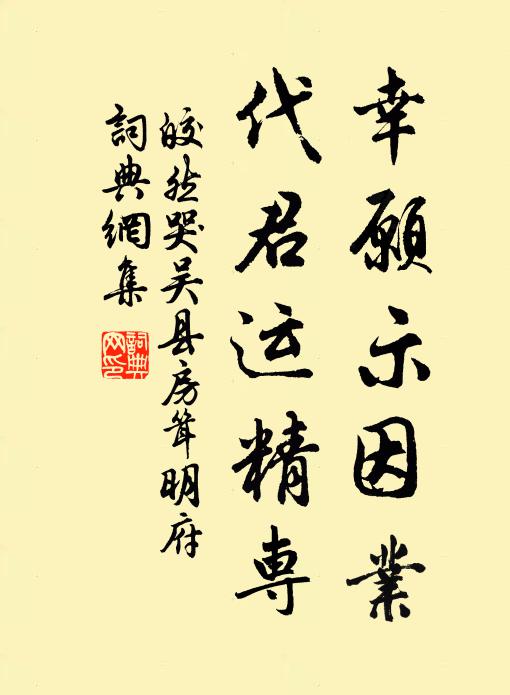 幸願示因業
代君运精專
皎然哭吴县房耸明府
詞典網集
詞典网印